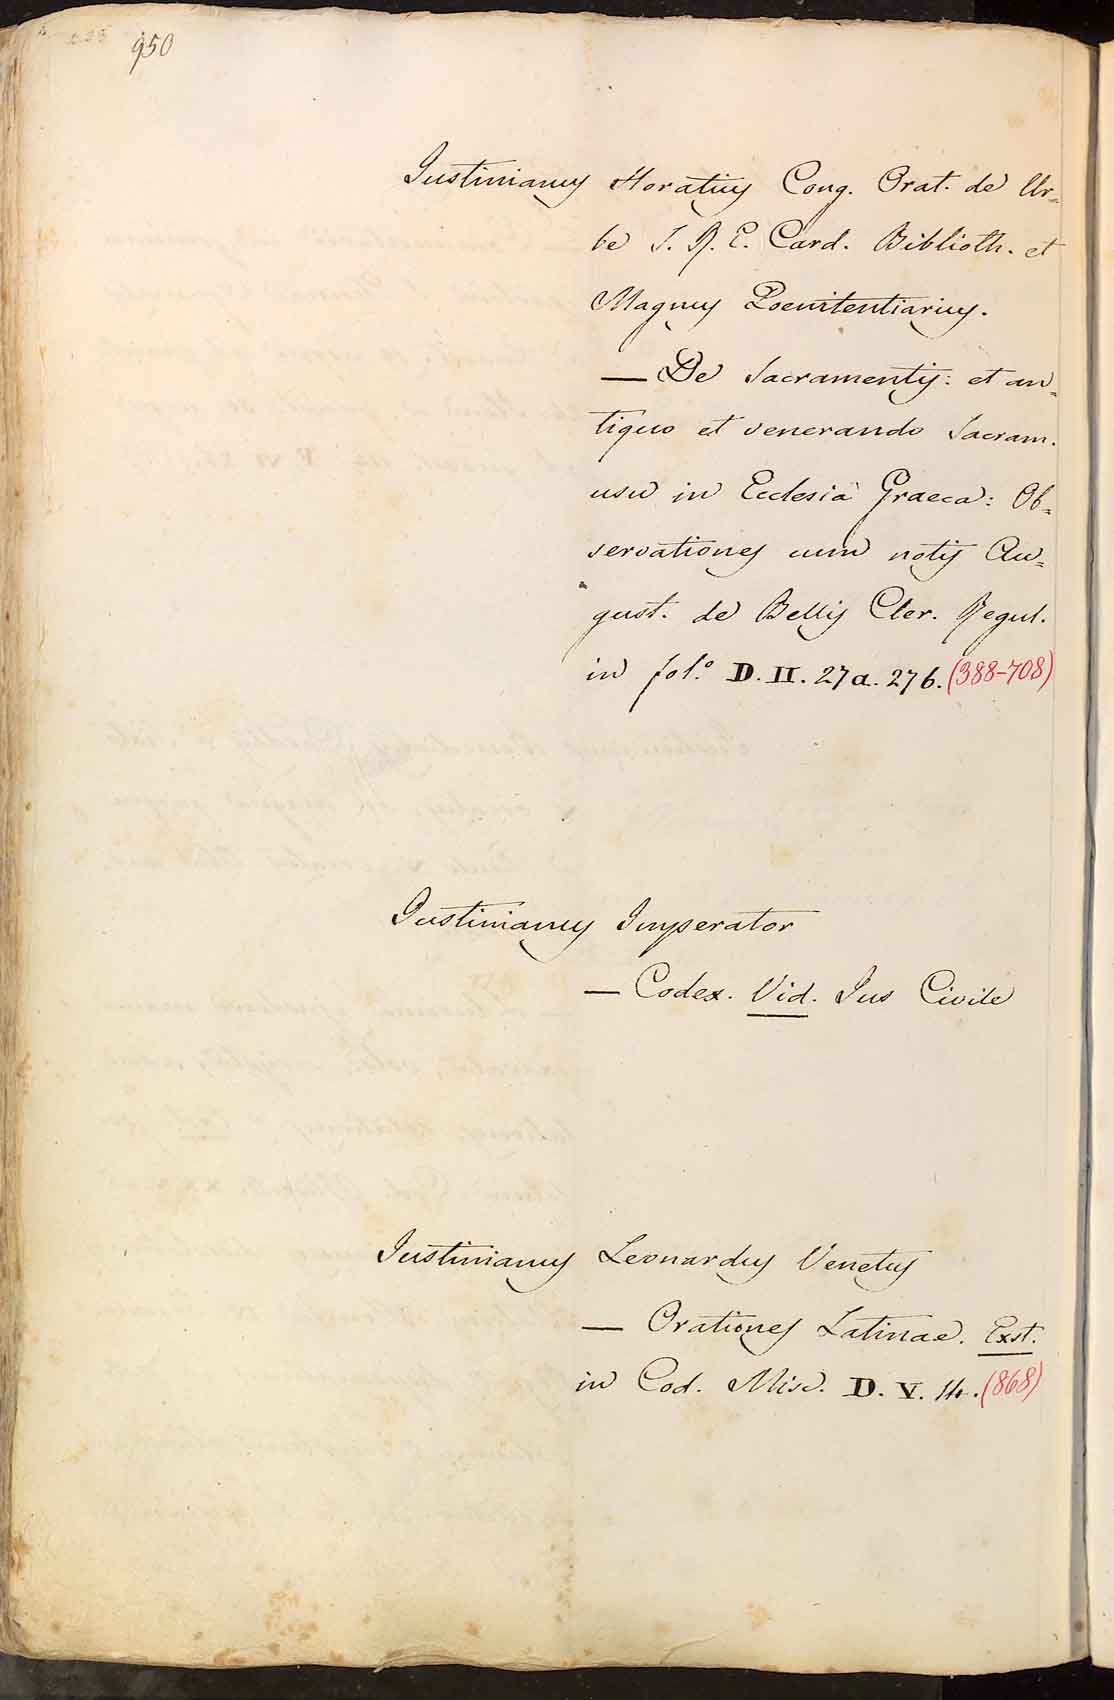 950
Justinianus Horatius Cong. Orat. de Ur=
be S. R. E. Card. Biblioth. et
Magnus Poenitentiarius.
— De Sacramentis: et an=
tiquo et venerando Sacram.
usu in Ecclesia Graeca: Ob=
servationes cum notis Au=
gust. de Bellis Cler. Regul.
in fol.º D. II. 27 a. 276. (388-708)
Justinianus Imperator
— Codex. Vid. Jus Civile
Justinianus Leonardus Venetus
— Orationes Latinae. Exst.
in Cod. Misc. D. V. 14. (868)